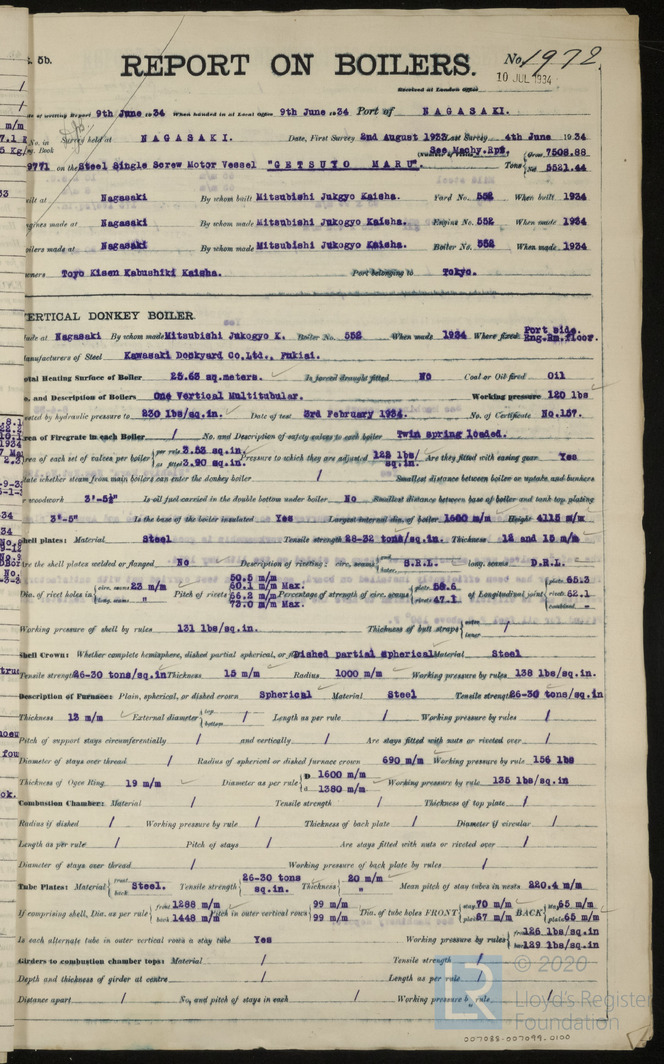 5b.
REPORT ON BOILERS.
No. 1972
10 JUL 1934
Received at London Office
Date of writing Report 9th June 1934 When handed in at Local Office 9th June 1934 Port of NAGASAKI.
No. in Survey held at NAGASAKI. Date, First Survey 2nd August 1933 Last Survey 4th June 1934
Reg. Book See Machy.Rpt.
9771 on the Steel Single Screw Motor Vessel "GETSUYO MARU". Tons Gross 7508.88 Net 5521.44
Built at Nagasaki By whom built Mitsubishi Jukgyo Kaisha. Yard No. 552 When built 1934
Engines made at Nagasaki By whom made Mitsubishi Jukogyo Kaisha. Engine No. 552 When made 1934
Boilers made at Nagasaki By whom made Mitsubishi Jukogyo Kaisha. Boiler No. 552 When made 1934
Owners Toyo Kisen Kabushiki Kaisha. Port belonging to Tokyo.
VERTICAL DONKEY BOILER.
Made at Nagasaki By whom made Mitsubishi Jukogyo K. Boiler No. 552 When made 1934 Where fixed Port side. Eng.Rm.floor.
Manufacturers of Steel Kawasaki Dockyard Co.Ltd., Fukiai.
Total Heating Surface of Boiler 25.63 sq.meters. Is forced draught fitted No Coal or Oil fired Oil
No. and Description of Boilers One Vertical Multitubular. Working pressure 120 lbs
Tested by hydraulic pressure to 230 lbs/sq.in. Date of test 3rd February 1934. No. of Certificate No.157.
Area of Firegrate in each Boiler / No. and Description of safety valves to each boiler Twin spring loaded.
Area of each set of valves per boiler per rule 3.53 sq.in. as fitted 3.90 sq.in. Pressure to which they are adjusted 123 lbs/ sq.in. Are they fitted with easing gear Yes
State whether steam from main boilers can enter the donkey boiler / Smallest distance between boiler or uptake and bunkers
or woodwork 3'-5½" Is oil fuel carried in the double bottom under boiler No Smallest distance between base of boiler and tank top plating
3'-5" Is the base of the boiler insulated Yes Largest internal dia. of boiler 1600 m/m Height 4115 m/m
Shell plates: Material Steel Tensile strength 28-32 tons/sq.in. Thickness 12 and 15 m/m
Are the shell plates welded or flanged No Description of riveting: circ. seams end S.R.L. inter. long. seams D.R.L.
Dia. of rivet holes in circ. seams 23 m/m long. seams " Pitch of rivets 50.5 m/m 60.1 m/m Max. 66.2 m/m 73.0 m/m Max. Percentage of strength of circ. seams plate 58.6 rivets 47.1 of Longitudinal joint plate 65.3 rivets 62.1 combined "
Working pressure of shell by rules 131 lbs/sq.in. Thickness of butt straps outer inner /
Shell Crown: Whether complete hemisphere, dished partial spherical, or flat Dished partial spherical Material Steel
Tensile strength 26-30 tons/sq.in Thickness 15 m/m Radius 1000 m/m Working pressure by rules 138 lbs/sq.in.
Description of Furnace: Plain, spherical, or dished crown Spherical Material Steel Tensile strength 26-30 tons/sq.in
Thickness 13 m/m External diameter top bottom / Length as per rule / Working pressure by rules /
Pitch of support stays circumferentially / and vertically / Are stays fitted with nuts or riveted over /
Diameter of stays over thread / Radius of spherical or dished furnace crown 690 m/m Working pressure by rule 156 lbs
Thickness of Ogee Ring 19 m/m Diameter as per rule D 1600 m/m d 1380 m/m Working pressure by rule 135 lbs/sq.in
Combustion Chamber: Material / Tensile strength / Thickness of top plate /
Radius if dished / Working pressure by rule / Thickness of back plate / Diameter if circular /
Length as per rule / Pitch of stays / Are stays fitted with nuts or riveted over /
Diameter of stays over thread / Working pressure of back plate by rules /
Tube Plates: Material front back Steel. Tensile strength 26-30 tons sq.in. Thickness 20 m/m " Mean pitch of stay tubes in nests 220.4 m/m
If comprising shell, Dia. as per rule front 1288 m/m back 1448 m/m Pitch in outer vertical rows 99 m/m 99 m/m Dia. of tube holes FRONT stay 70 m/m plain 67 m/m BACK stay 65 m/m plain 65 m/m
Is each alternate tube in outer vertical rows a stay tube Yes Working pressure by rules front 126 lbs/sq.in back 129 lbs/sq.in
Girders to combustion chamber tops: Material / Tensile strength /
Depth and thickness of girder at centre / Length as per rule /
Distance apart / No. and pitch of stays in each / Working pressure by rule /
© 2020
LR
Lloyd's Register
Foundation
007085-007099-0100